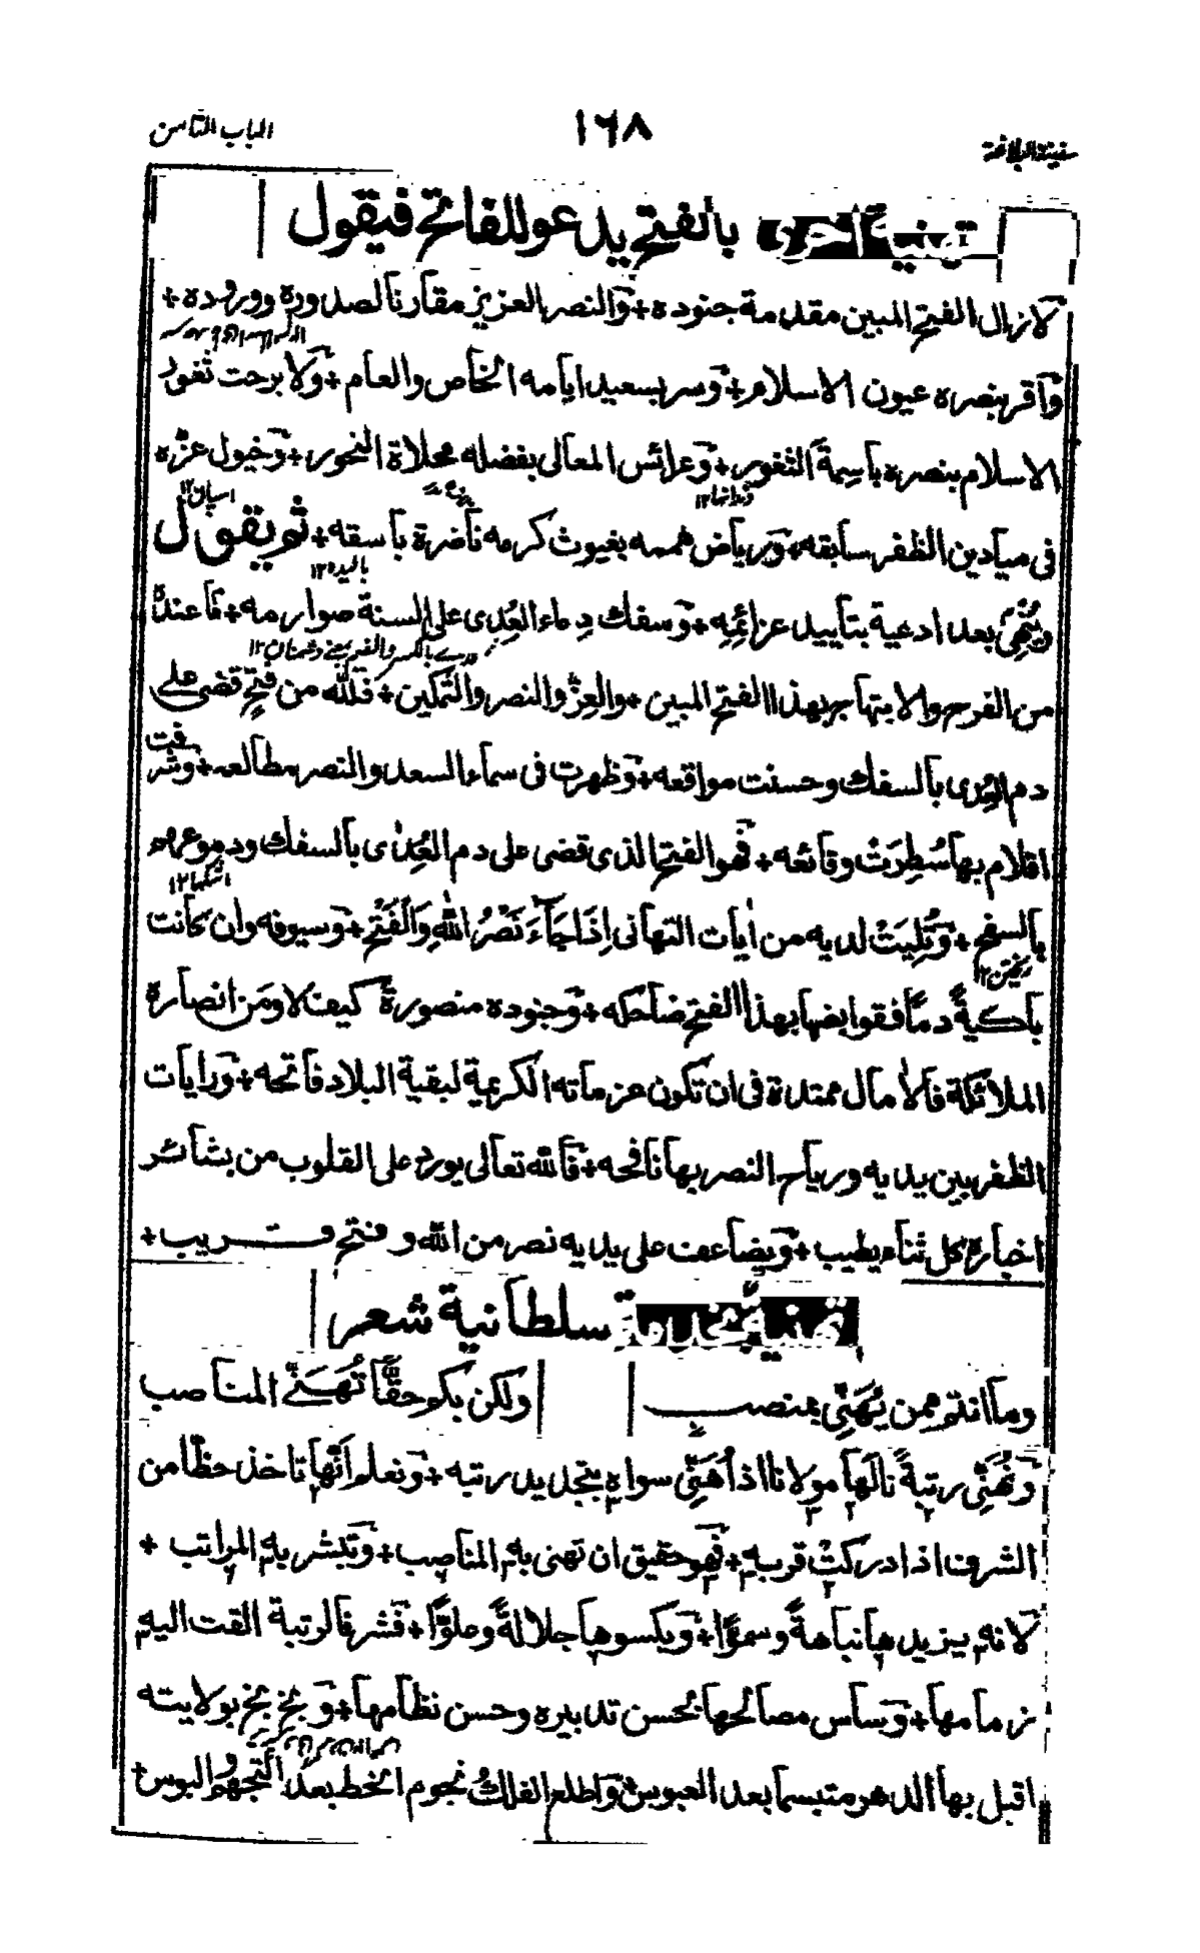 سفينة البلاغة
١٦٨
الباب الثامن
تهنية اخرى بالفتح يدعو للفاتح فيقول
لازال الفتح المبين مقدمة جنوده + وَالنصر العزيز مقارنا لصدوره ووروده +
وَاقر بنصره عيون الاسلام + وَسر بسعيد ايامه الخاص والعام + وَلا برحت ثغور
الاسلام بنصره باسِمةَ الثغور + وَعرائس المعالى بفضله محلاة النحور + وَخيول عزّه
دندانها ١٢
اسپان ١٢
فى ميادين الظفر سابقه + وَرياض هممه بغيوث كرمه ناضرة باسقه + ثم يقول
باليده ١٢
ويُنْهِىْ بعد ادعية بتأييد عزائِمِه + وَسفك دِماء العِدٰى على السنة صوارمه + فاعندهٗ
من الفرح والابتهاج بهذا الفتح المبين + والعِزّ والنصر والتمكين + فَلله من فتحٍ قضى على
دم العِدٰى بالسفك وحسنت مواقعه + وَظهرت فى سماء السعد والنصر مطالعه + وَشرفت
اقلام بها سُطِرَتْ وقائعه + فَهو الفتح الذى قضى على دم العِدٰى بالسفك ودموعهم
اشكها ١٢
بالسفح + وَتُلِيَتْ لديه من اٰيات التهانى اِذَا جَآءَ نَصْرُ اللهِ وَالْفَتْحُ + وَسيوفه وان كانت
ريختن ١٢
باكيةً دمًا فقوابضها بهذا الفتح ضاحكه + وَجنوده منصورةً كيف لا ومن انصاره
الملائكة فالاٰمال ممتدة فى ان تكون عزماته الكريمة لبقية البلاد فاتحه + وَرايات
الظفر بين يديه ورياح النصر بها نافحه + فَالله تعالى يورد على القلوب من بشائر
اخباره كل ثناء يطيب + وَيضاعف على يديه نصر من الله و فتح قريب +
تهنية بخدمة سلطانية شعر
وما انتم ممن يُهَنّٰى بمنصب
ولكن بكم حقًّا تُهَنّٰى المناصب
وَتُهَنّٰى رتبةً نالها مولانا اذا هَنّٰى سواه بتجديد رتبه + وَنعلم انّها تاخذ حظًا من
الشرف اذا ادركتْ قربه + فَهو حقيق ان تهنى به المناصب + وَتبشر به المراتب +
لانه يزيدها نباهةً وسموًّا + وَيكسوها جلالةً وعلوًّا + فَشرفا لرتبة القت اليه
زمامها + وَساس مصالحها بحسن تدبيره وحسن نظامها + وَبخ بخ بولايته
اقبل بها الدهر متبسما بعد العبوس وَاطلع الفلك نجوم الخط بعد التجهم والبوس +